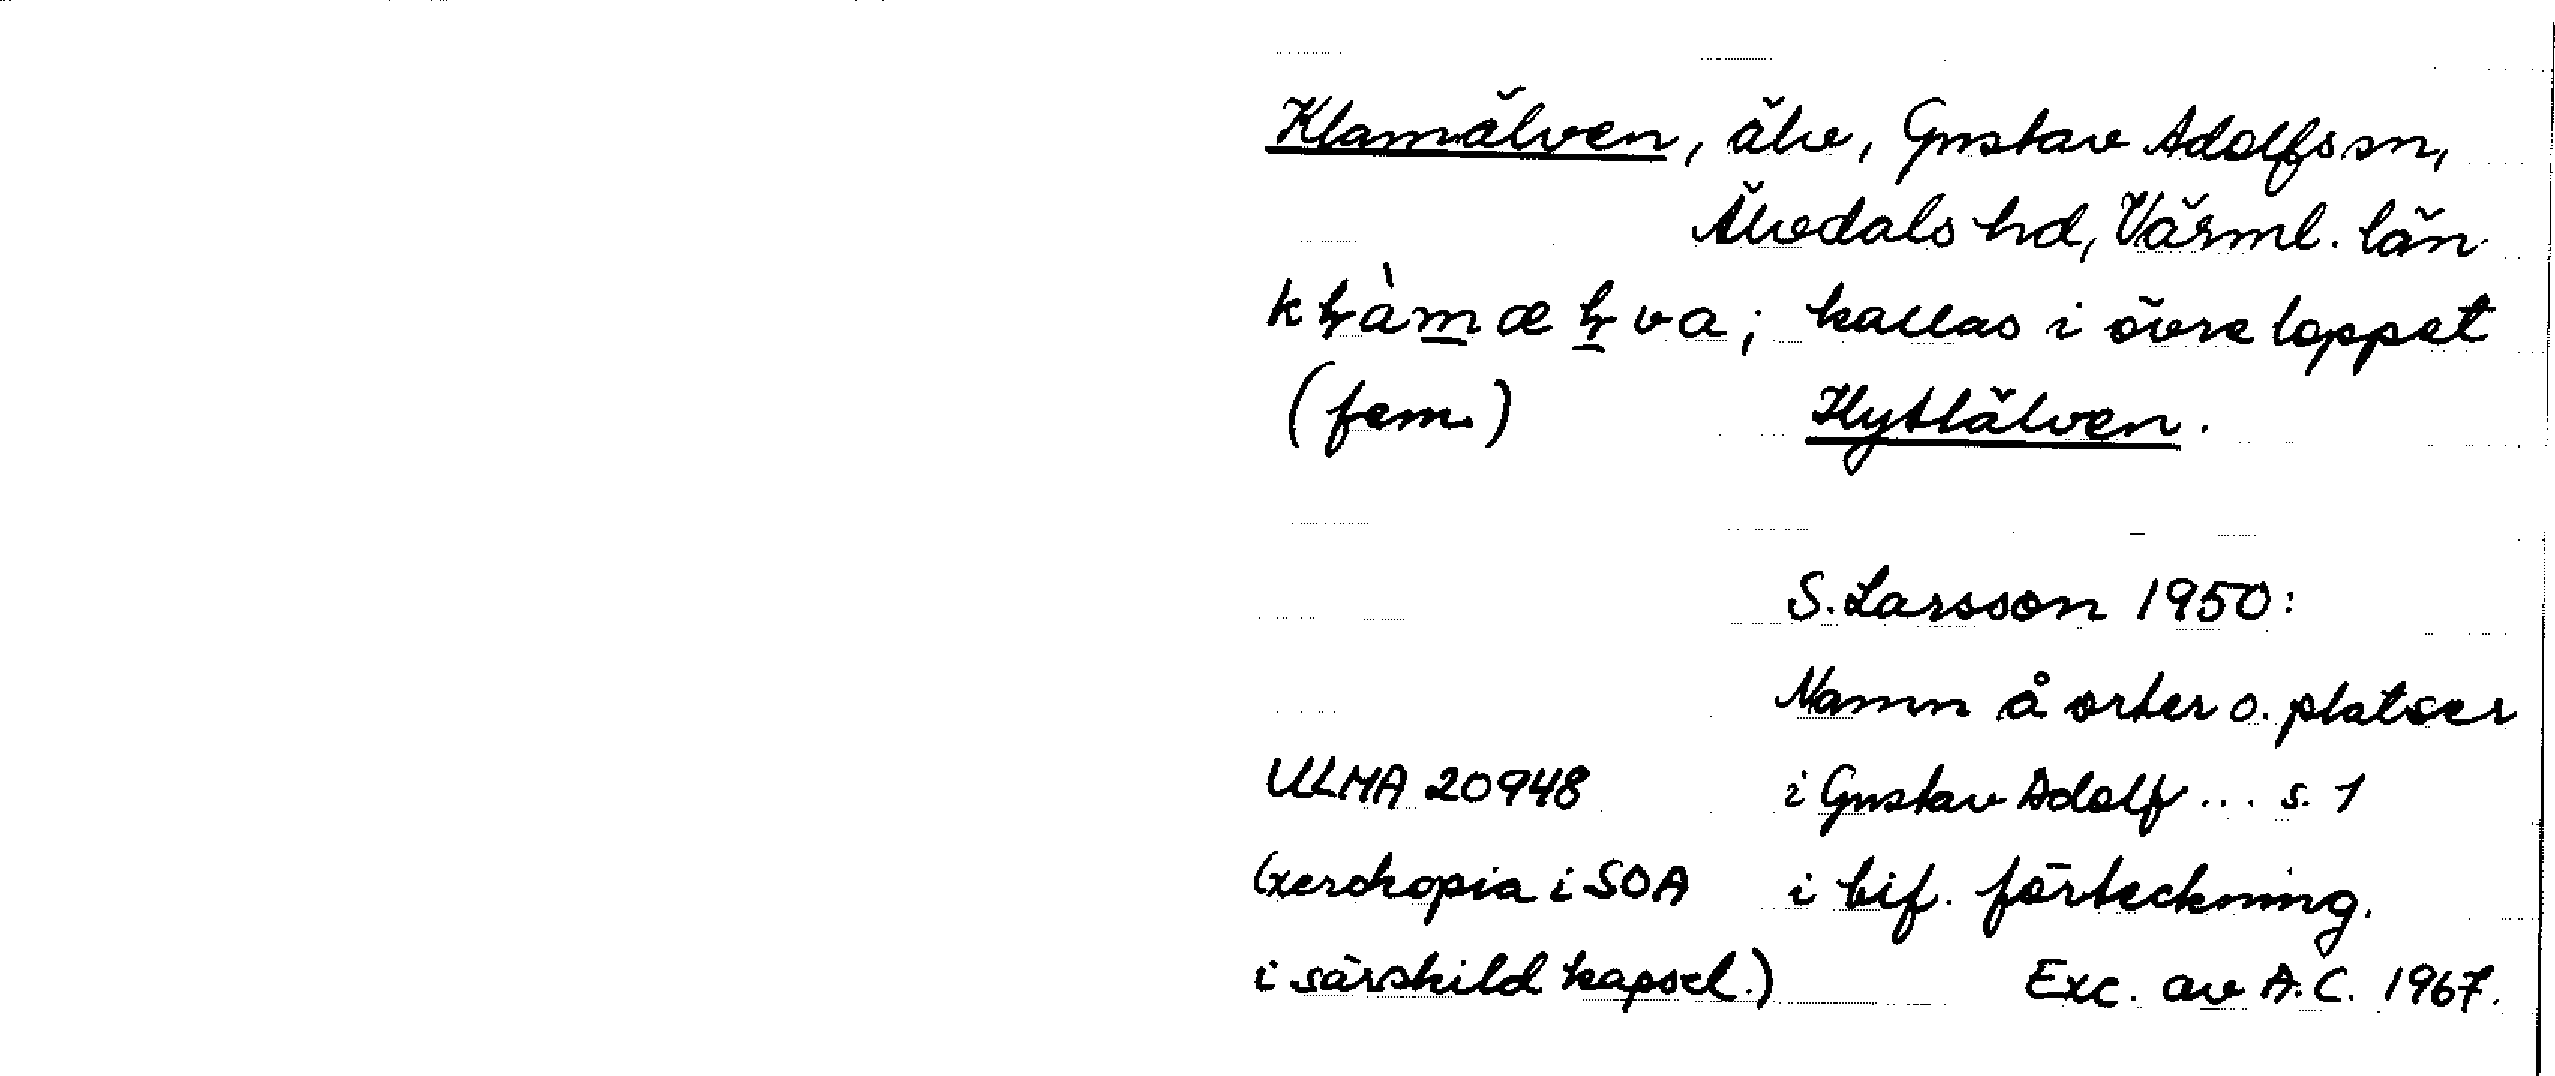 Klamälven, älv, Gustav Adolfs sn,
Älvdals hd, Värml. län
kɽàmæɽva; kallas i övre loppet
(fem.) Klytälven.
S. Larsson 1950:
Namn å orter o. platser
ULMA 20948 i Gustav Adolf ... s. 1
(xerokopia i SOA i bif. förteckning.
i särskild kapsel.) Exc. av A.C. 1967.